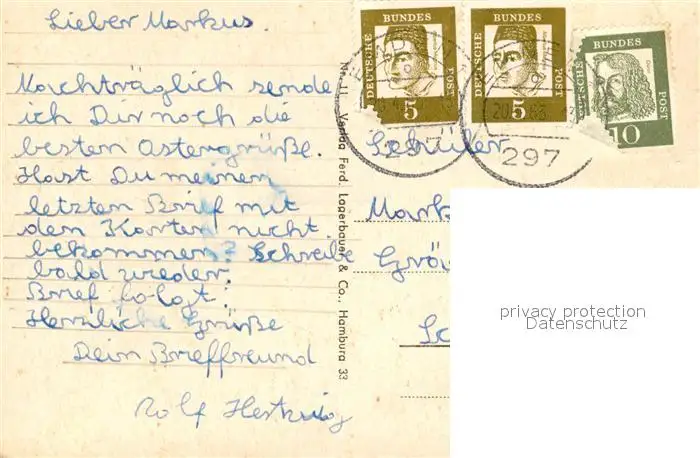 Lieber Markus.
Nachträglich sende
ich Dir noch die
besten Ostergrüße.
Hast Du meinen
letzten Brief mit
den Karten nicht
bekommen? Schreibe
bald wieder.
Brief folgt!
Herzliche Grüße
Dein Brieffreund
Rolf
Nr. 11 Verlag Ferd. Lagerbauer & Co., Hamburg 33
DEUTSCHE BUNDES POST
5
DEUTSCHE BUNDES POST
5
DEUTSCHE BUNDES POST
10
297
297
Schüler
Mark
privacy protection
Datenschutz